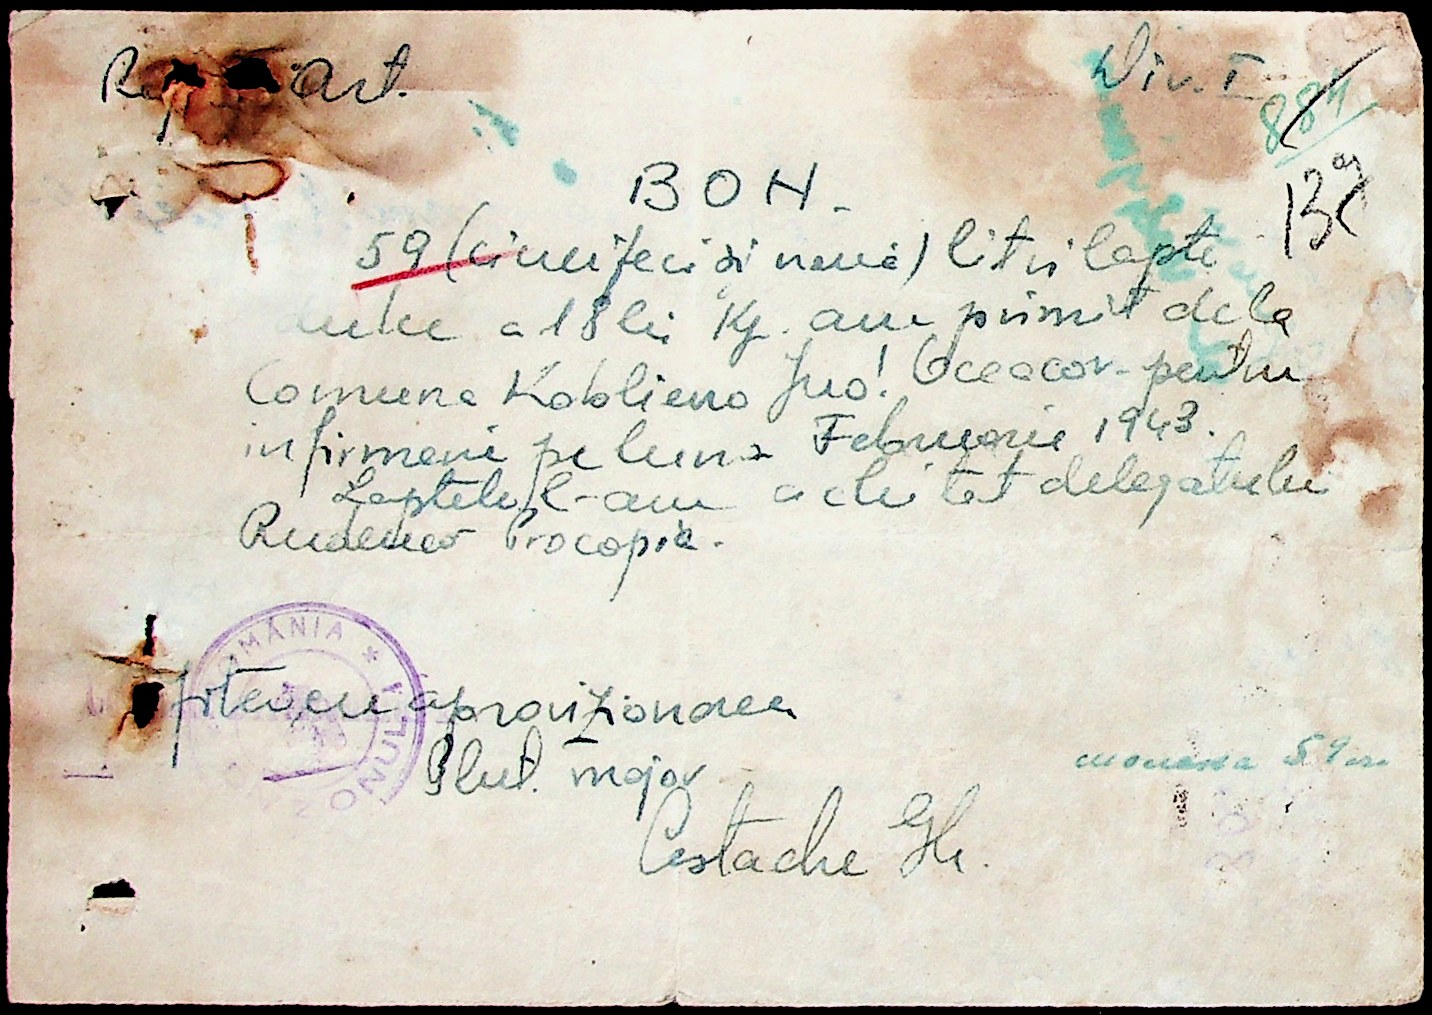 Art. Div. I
884
139
BOH.
59 (cincizeci și nouă) litri lapte
dulce a 18 lei Kg. am primit dela
Comuna Koblievo Jud. Oceacov. pentru
infirmerie pe luna Februarie 1943.
Laptele l-am achitat delegatului
Procopie.
ROMÂNIA *
aprovizionarea
Plut. major
59
Costache Gh.